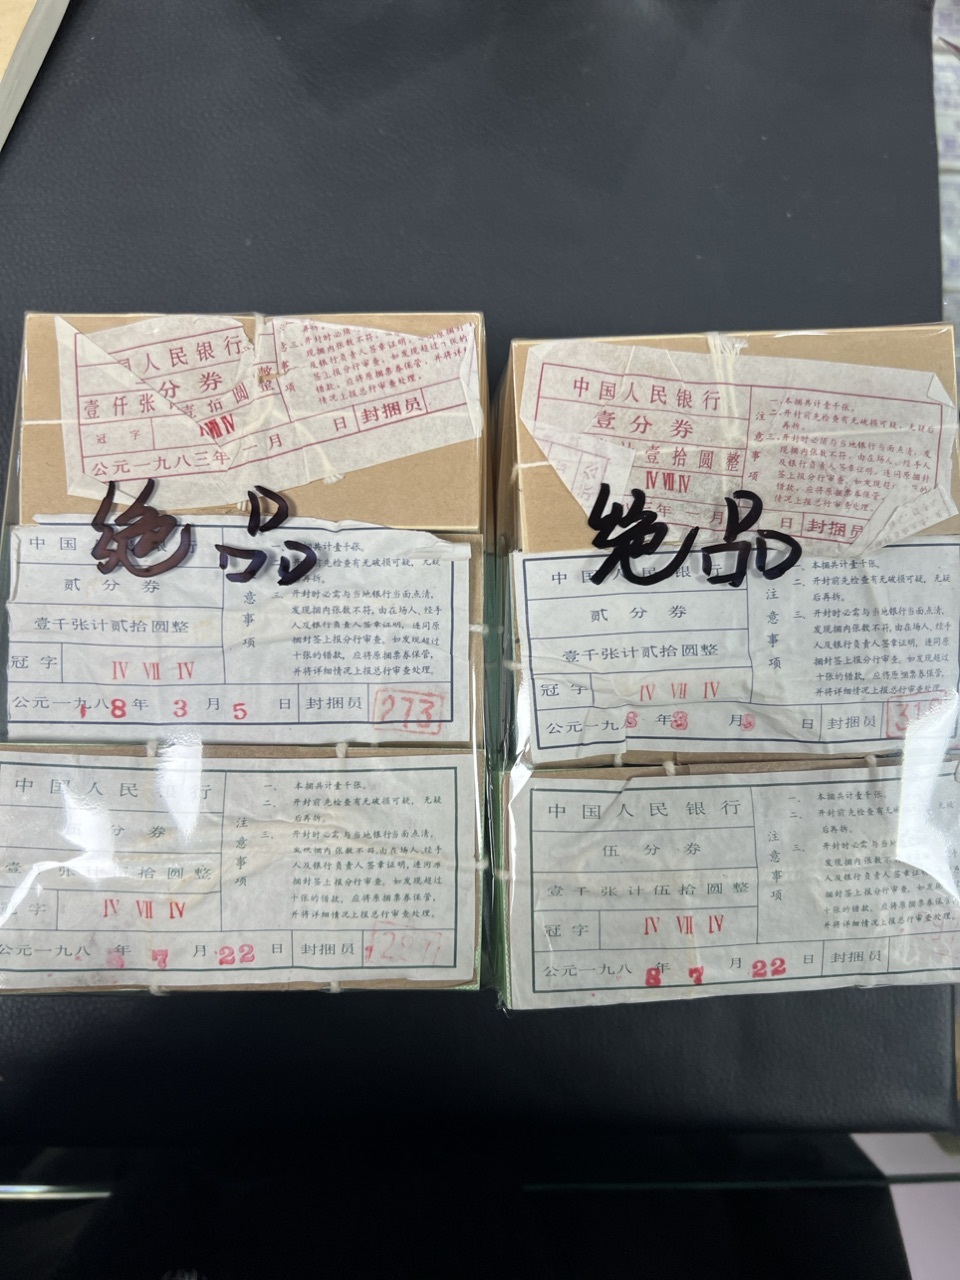 国人民银行
分券
壹仟张
壹佰圆整
冠字
Ⅳ
公元一九八三年 一月 日 封捆员
意事项
三、开封时必须
现捆内张数不符,由
及银行负责人签章证明,
签上报分行审查,如发现超过
错款,应将原捆票券保管,并将详
情况上报总行审查处理。
中国人民银行
壹分券
壹拾圆整
Ⅳ Ⅶ Ⅳ
年 一月 日 封捆员
注意事项
一、本捆共计壹千张。
二、开封前先检查有无破损可疑,无疑
再拆。
三、开封时必须与当地银行当面点清,发
现捆内张数不符,由在场人、经手人
及银行负责人签章证明,连同原捆封
签上报分行审查,如发现超
错款,应将原捆票券保管,
情况上报总行审查处理。
绝品
绝品
中国 银行
贰分券
壹千张计贰拾圆整
冠字 Ⅳ Ⅶ Ⅳ
公元一九八8年3月5日 封捆员 273
意事项
捆共计壹千张。
二、开封前先检查有无破损可疑,无疑
后再拆。
三、开封时必需与当地银行当面点清,
发现捆内张数不符,由在场人、经手
人及银行负责人签章证明,连同原
捆封签上报分行审查,如发现超过
十张的错款,应将原捆票券保管,
并将详细情况上报总行审查处理。
中国人民银行
贰分券
壹千张计贰拾圆整
冠字 Ⅳ Ⅶ Ⅳ
公元一九8年3月5日 封捆员
注意事项
一、本捆共计壹千张。
二、开封前先检查有无破损可疑,无疑
后再拆。
三、开封时必需与当地银行当面点清,
发现捆内张数不符,由在场人、经手
人及银行负责人签章证明,连同原
捆封签上报分行审查,如发现超过
十张的错款,应将原捆票券保管,
并将详细情况上报总行审查处理。
中国人民银行
分券
壹千张计伍拾圆整
冠字 Ⅳ Ⅶ Ⅳ
公元一九八8年7月22日 封捆员
注意事项
一、本捆共计壹千张。
二、开封前先检查有无破损可疑,无疑
后再拆。
三、开封时必需与当地银行当面点清,
发现捆内张数不符,由在场人、经手
人及银行负责人签章证明,连同原
捆封签上报分行审查,如发现超过
十张的错款,应将原捆票券保管,
并将详细情况上报总行审查处理。
中国人民银行
伍分券
壹千张计伍拾圆整
冠字 Ⅳ Ⅶ Ⅳ
公元一九八8年7月22日 封捆员
注意事项
一、本捆共计壹千张。
二、开封前先检查有无
后再拆。
三、开封时必需与当地
发现捆内张数不
人及银行负责人
捆封签上报分行审查,如发
十张的错款,应将原捆票
并将详细情况上报总行审查处理。